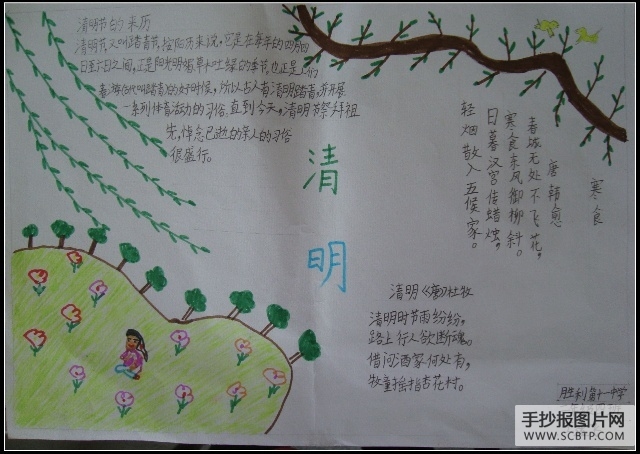 清明节的来历
清明节又叫踏青节,按阳历来说,它是在每年的四月四
日至六日之间,正是阳光明媚草木吐绿的季节,也正是人们
春游(古代叫踏青)的好时候,所以古人有清明踏青,并开展
一系列体育活动的习俗。直到今天,清明节祭拜祖
先,悼念已逝的亲人的习俗
很盛行。
清明
寒食
唐 韩愈
春城无处不飞花,
寒食东风御柳斜。
日暮汉宫传蜡烛,
轻烟散入五侯家。
清明 (唐)杜牧
清明时节雨纷纷,
路上行人欲断魂。
借问酒家何处有,
牧童摇指杏花村。
胜利第十一中学
手抄报图片网
WWW.SCBTP.COM